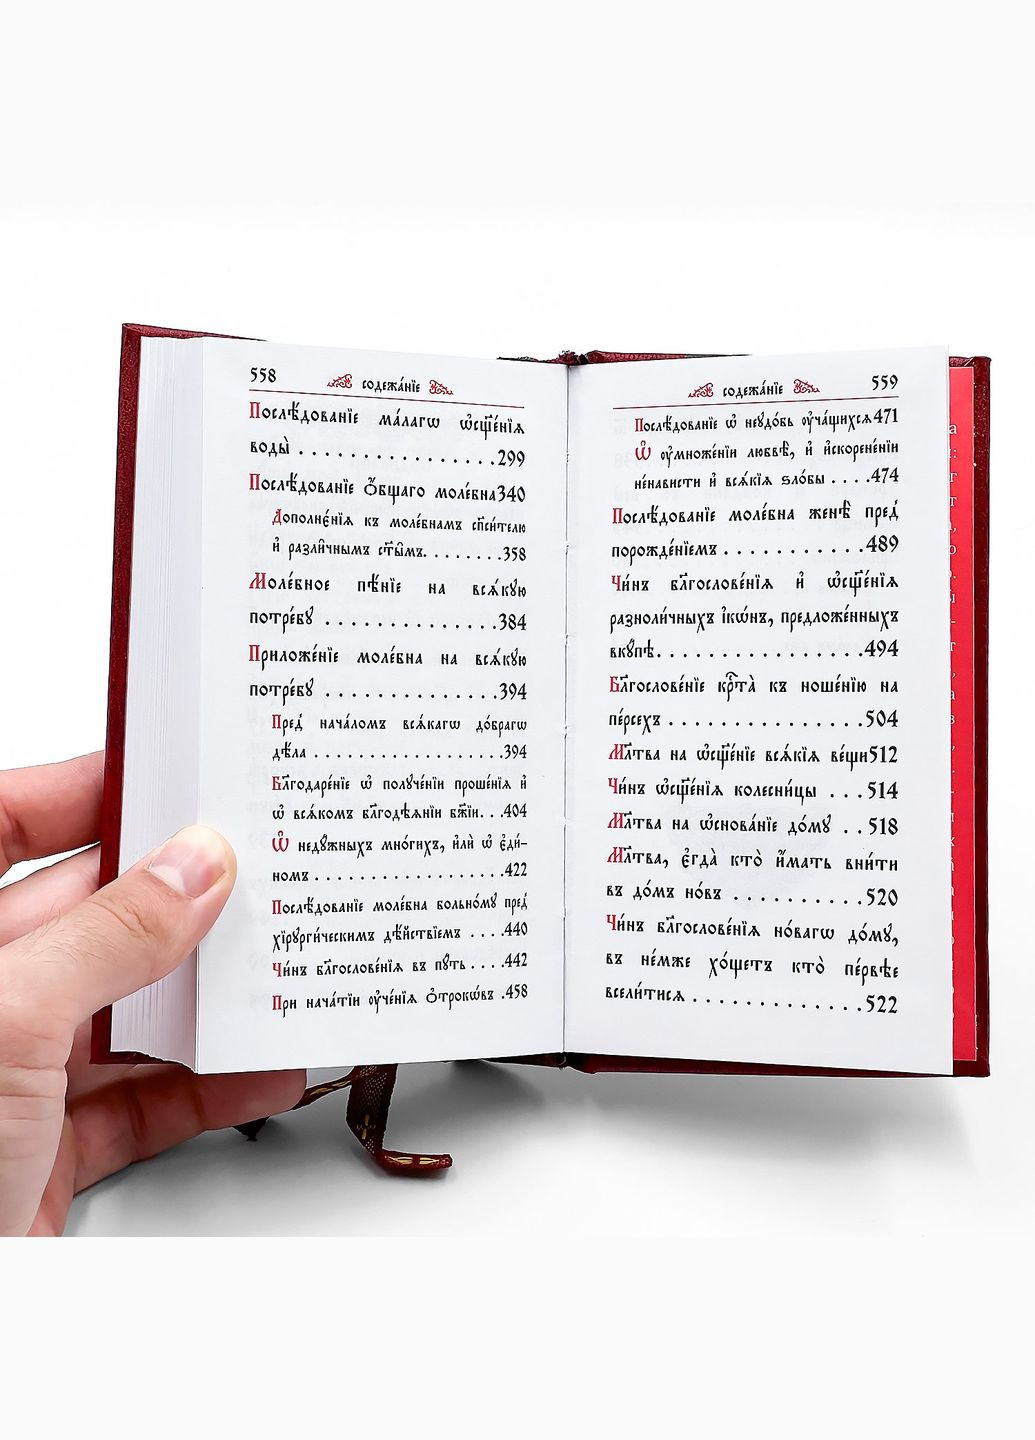 558
содежа́нїе
Послѣ́дованїе ма́лагѡ ѡ҆сщ҃е́нїѧ
воды̀ . . . . . . . . . . . . . . . . 299
Послѣ́дованїе ѻ҆́бщаго моле́бна 340
Дополне́нїѧ къ моле́бнамъ сп҃си́телю
и҆ разли́чнымъ ст҃ы̑мъ. . . . . . . . 358
Моле́бное пѣ́нїе на всѧ́кую
потре́бꙋ . . . . . . . . . . . . . . 384
Приложе́нїе моле́бна на всѧ́кую
потре́бꙋ . . . . . . . . . . . . . . 394
Пред̾ нача́ломъ всѧ́кагѡ до́брагѡ
дѣ́ла . . . . . . . . . . . . . . . . . 394
Бл҃годаре́нїе ѡ҆ полꙋче́нїи проше́нїѧ и҆
ѡ҆ всѧ́комъ бл҃годѣѧ́нїи бж҃їи. . . 404
Ѡ҆ недꙋ́жныхъ мно́гихъ, и҆лѝ ѡ҆ є҆ди́-
номъ . . . . . . . . . . . . . . . . . 422
Послѣ́дованїе моле́бна больно́мꙋ пред̾
хїрꙋрги́ческимъ дѣ́йствїемъ . . . . 440
Чи́нъ бл҃гослове́нїѧ въ пꙋ́ть . . . . 442
При нача́тїи оу҆че́нїѧ ѻ҆трокѡ́въ . 458
559
содежа́нїе
Послѣ́дованїе ѡ҆ неꙋдо́бь оу҆ча́щихсѧ 471
Ѡ҆ оу҆множе́нїи любвѐ, и҆ и҆скорене́нїи
не́нависти и҆ всѧ́кїѧ ѕло́бы . . . . 474
Послѣ́дованїе моле́бна женѣ̀ пред̾
порожде́нїемъ . . . . . . . . . . . 489
Чи́нъ бл҃гослове́нїѧ и҆ ѡ҆сщ҃е́нїѧ
разноли́чныхъ і҆кѡ́нъ, предложе́нныхъ
вкꙋ́пѣ. . . . . . . . . . . . . . . . 494
Бл҃гослове́нїе крⷭ҇та̀ къ ноше́нїю на
пе́рсехъ . . . . . . . . . . . . . . . 504
Мл҃тва на ѡ҆сщ҃е́нїе всѧ́кїѧ ве́щи 512
Чи́нъ ѡ҆сщ҃е́нїѧ колесни́цы . . . 514
Мл҃тва на ѡ҆снова́нїе до́мꙋ . . 518
Мл҃тва, є҆гда̀ кто̀ и҆́мать вни́ти
въ до́мъ но́въ . . . . . . . . . . 520
Чи́нъ бл҃гослове́нїѧ но́вагѡ до́мꙋ,
въ не́мже хо́щетъ кто̀ пе́рвѣе
всели́тисѧ . . . . . . . . . . . . . 522